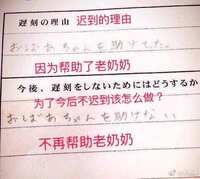 遅刻の理由 迟到的理由
おばあちゃんを助けてた。
因为帮助了老奶奶
今後、遅刻をしないためにはどうするか
为了今后不迟到该怎么做?
おばあちゃんを助けない
不再帮助老奶奶